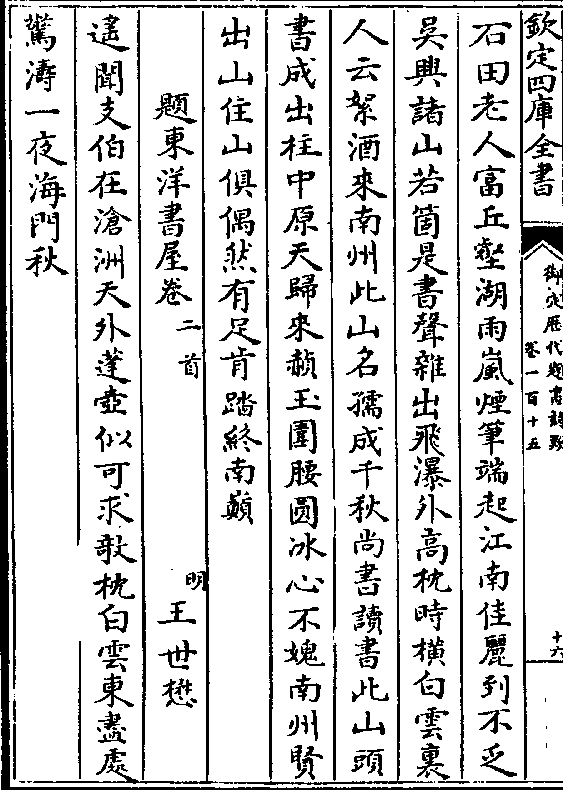 欽定四庫全書
御定歷代題畫詩類
卷一百十五
十六
石田老人富丘壑湖雨嵐煙筆端起江南佳麗列不乏
吳興諸山若箇是書聲雜出飛瀑外高枕時橫白雲裏
人云絮酒來南州此山名孺成千秋尚書讀書此山頭
書成出柱中原天歸來赬玉圍腰圓冰心不媿南州賢
出山住山俱偶然有足肯踏終南巔
題東洋書屋卷二首
明王世懋
遙聞支伯在滄洲天外蓬壺似可求欹枕白雲東盡處
驚濤一夜海門秋